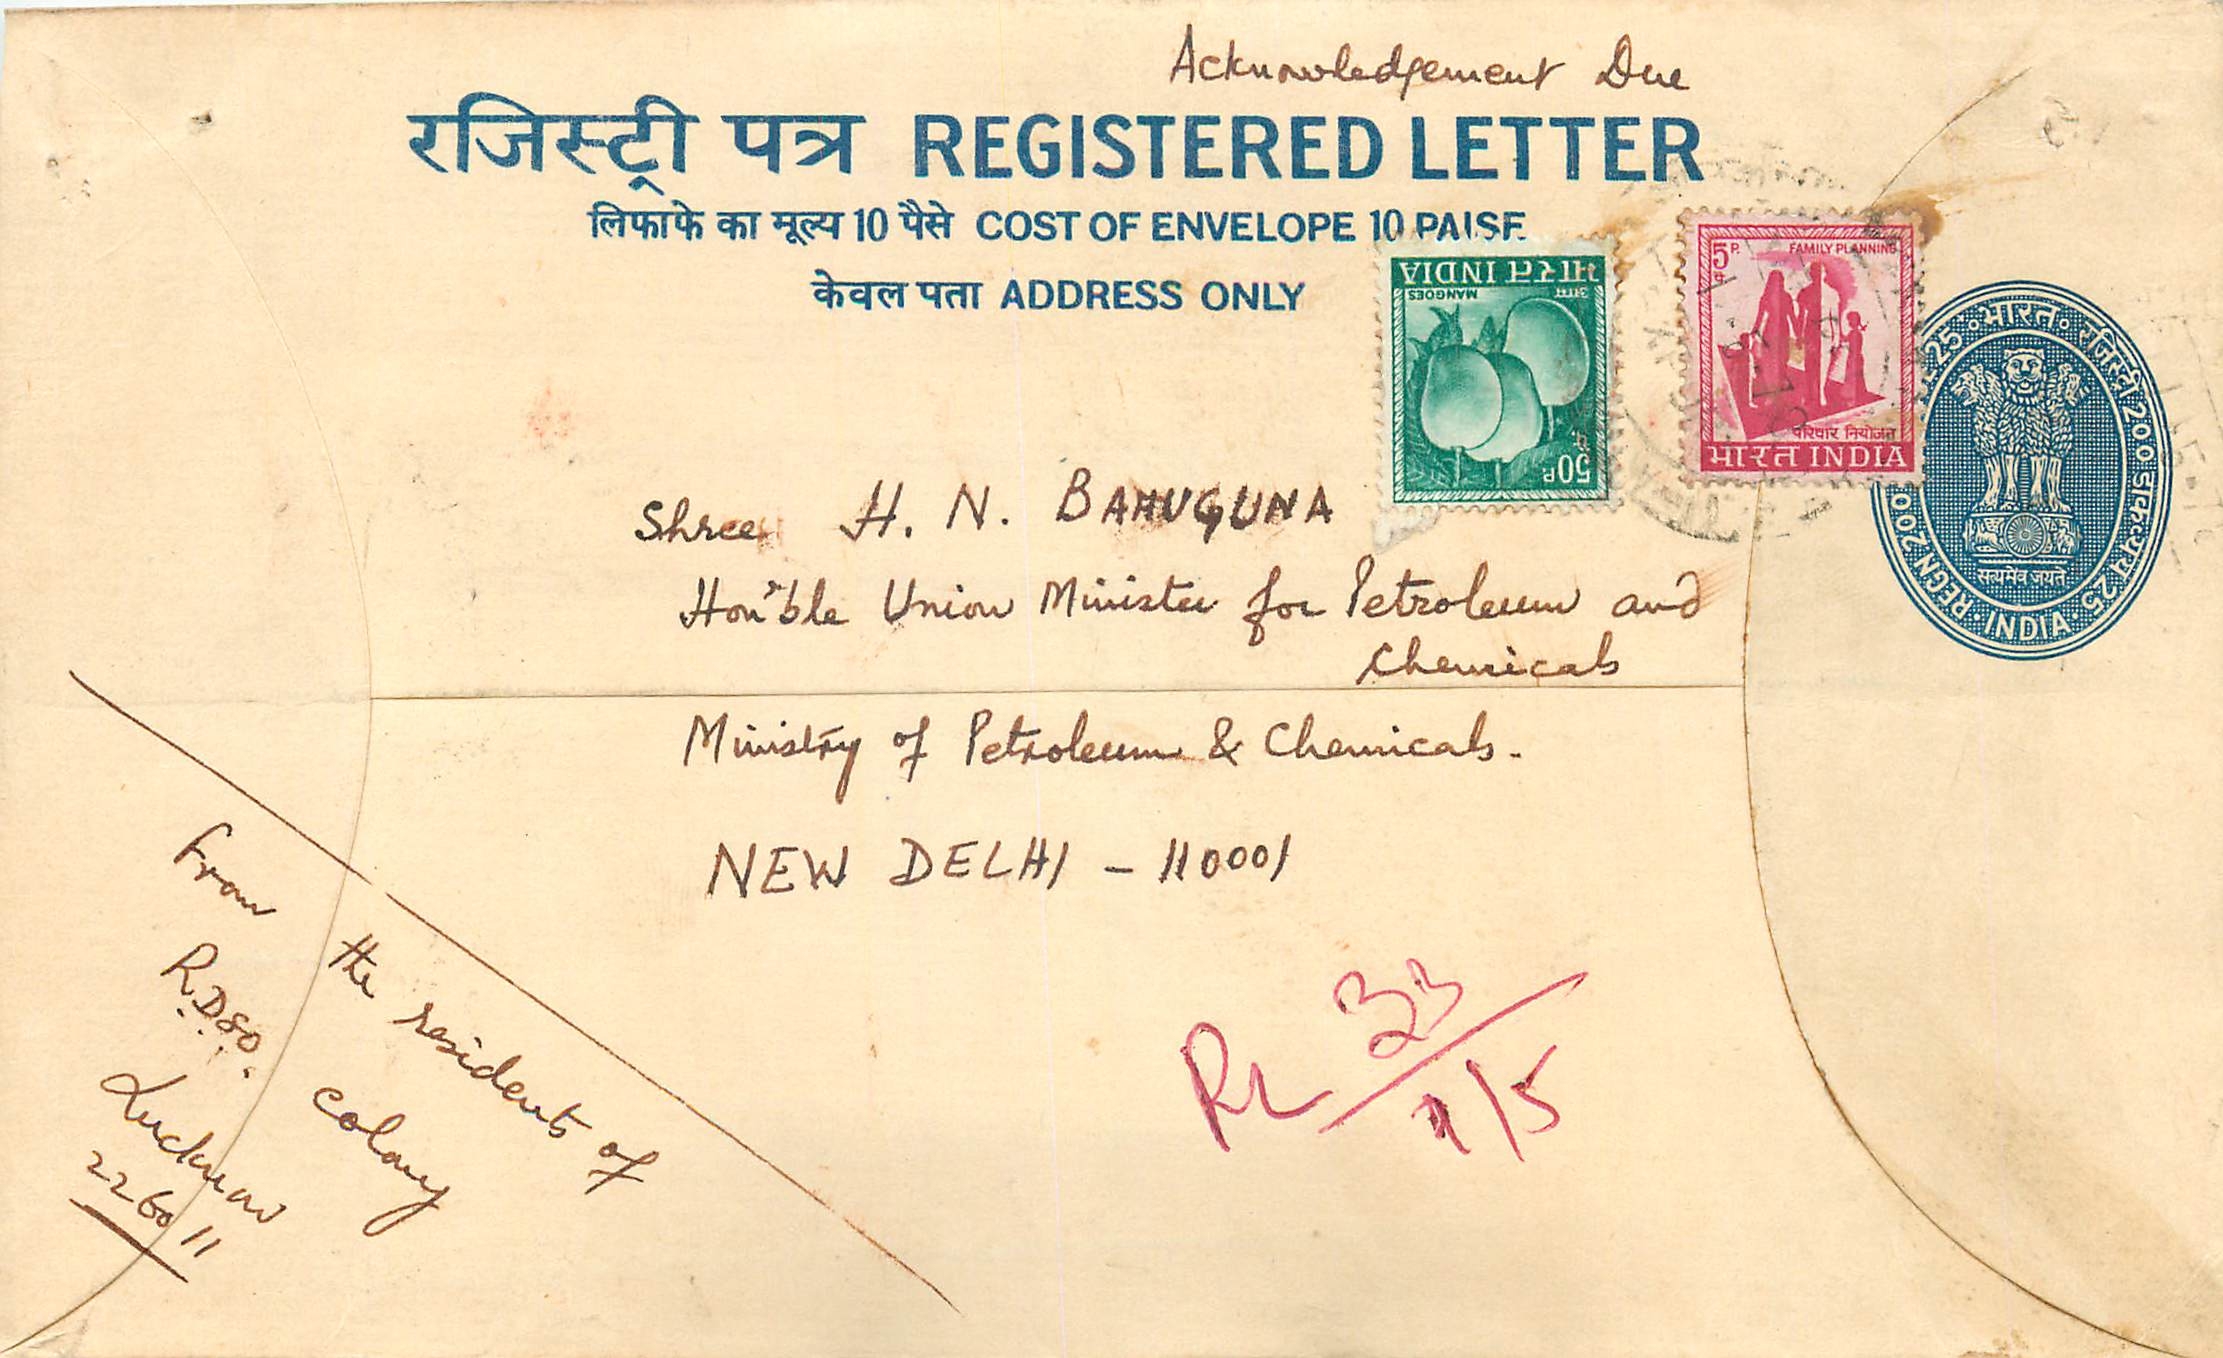 Acknowledgement Due
रजिस्ट्री पत्र REGISTERED LETTER
लिफाफे का मूल्य 10 पैसे COST OF ENVELOPE 10 PAISE
केवल पता ADDRESS ONLY
भारत INDIA
आम MANGOES
50P.
5P.
FAMILY PLANNING
परिवार नियोजन
भारत INDIA
25 • भारत • रजिस्ट्री 200 डाकव्यय 25 • INDIA • REGN. 200
सत्यमेव जयते
Shree H. N. BAHUGUNA
Hon'ble Union Minister for Petroleum and
Chemicals
Ministry of Petroleum & Chemicals.
NEW DELHI - 110001
From the residents of
R.D.S.O. colony
Lucknow
226011
RL 33
1/5